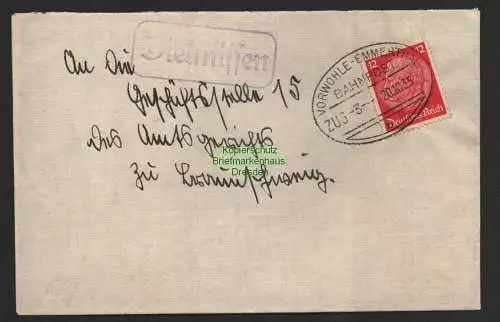 Dielmissen
An die
Geschäftsstelle 15
des Amtsgerichts
zu Braunschweig.
VORWOHLE-EMMERTHAL
BAHNPOST
ZUG
12 12
Deutsches Reich
Kopierschutz
Briefmarkenhaus
Dresden